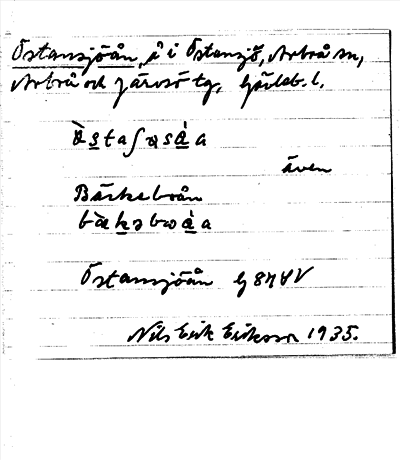 Östansjöån, å i Östansjö, Arbrå sn,
Arbrå och Järvsö tg, Gävleb. l.
även
Bäckeboån
Östansjöån G 87 AV
Nils Erik Eriksson 1935.